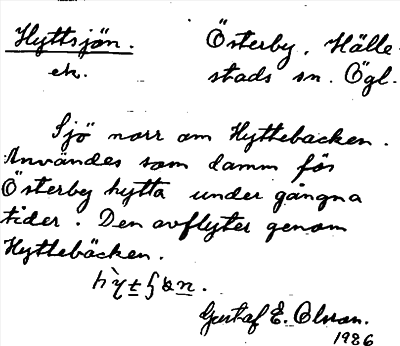 Hyttsjön. Österby, Hälle-
ek. stads sn. Ögl.
Sjö norr om Hyttebäcken.
Användes som damm för
Österby hytta under gångna
tider. Den avflyter genom
Hyttebäcken.
Gustaf E. Olsson.
1926